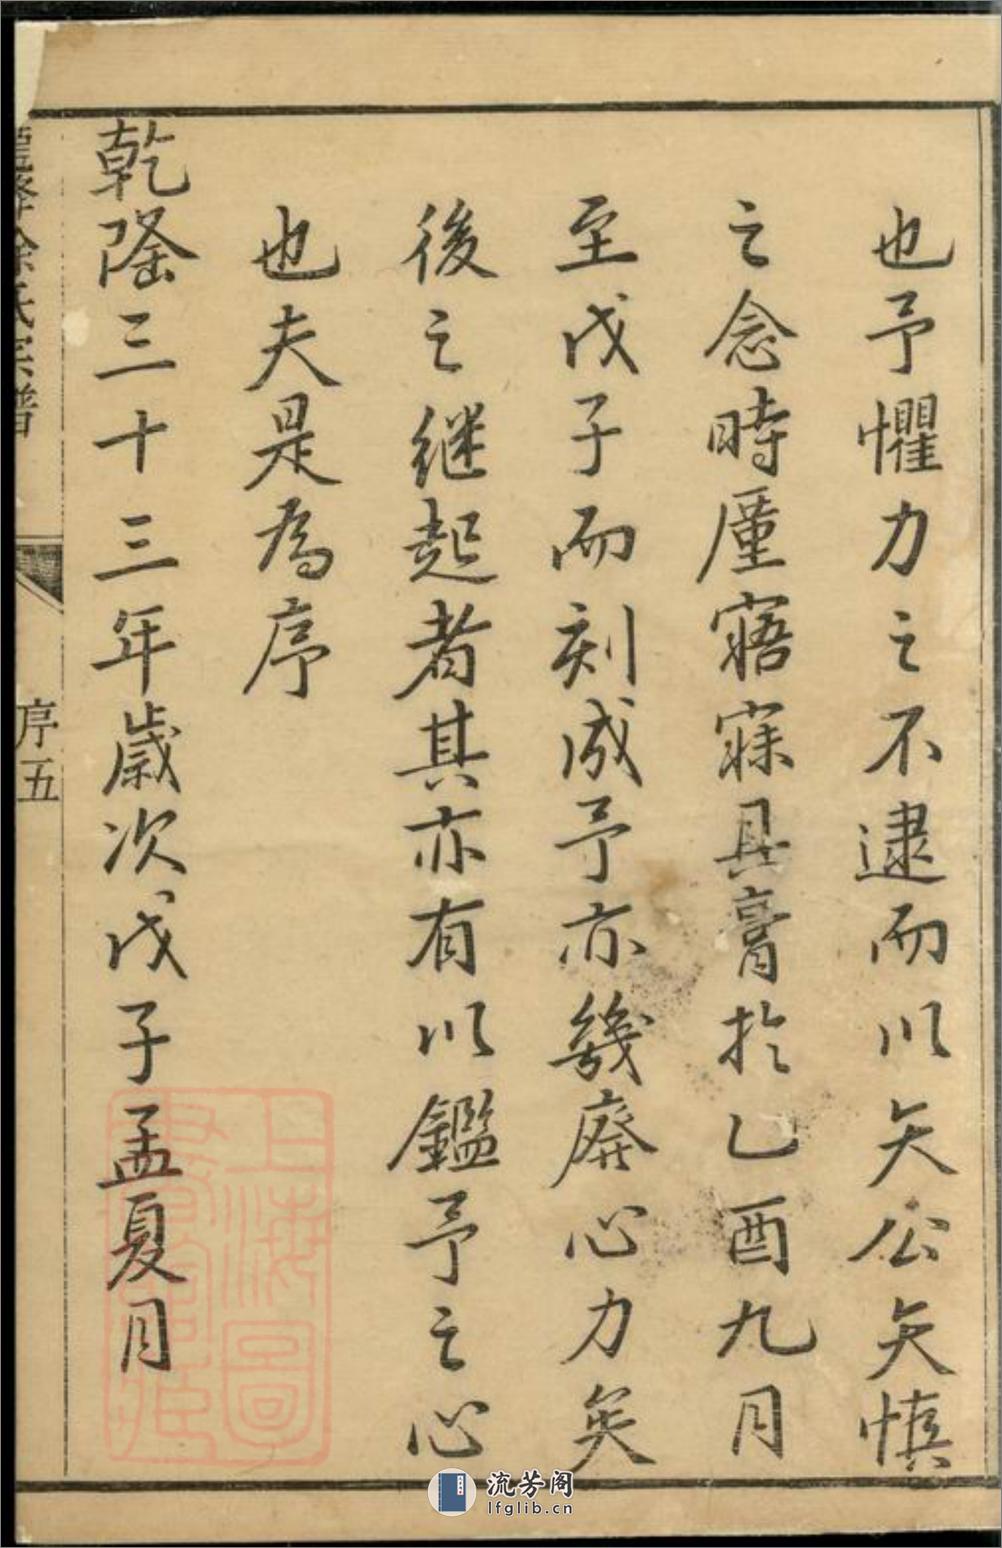 也予懼力之不逮而以矢公矢慎
之念時廑寤寐具膏於乙酉九月
至戊子而刻成予亦幾廢心力矣
後之继起者其亦有以鑑予之心
也夫是為序
乾隆三十三年歲次戊子孟夏月
徐氏宗譜
序五
上海圖書館藏
流芳阁
lfglib.cn